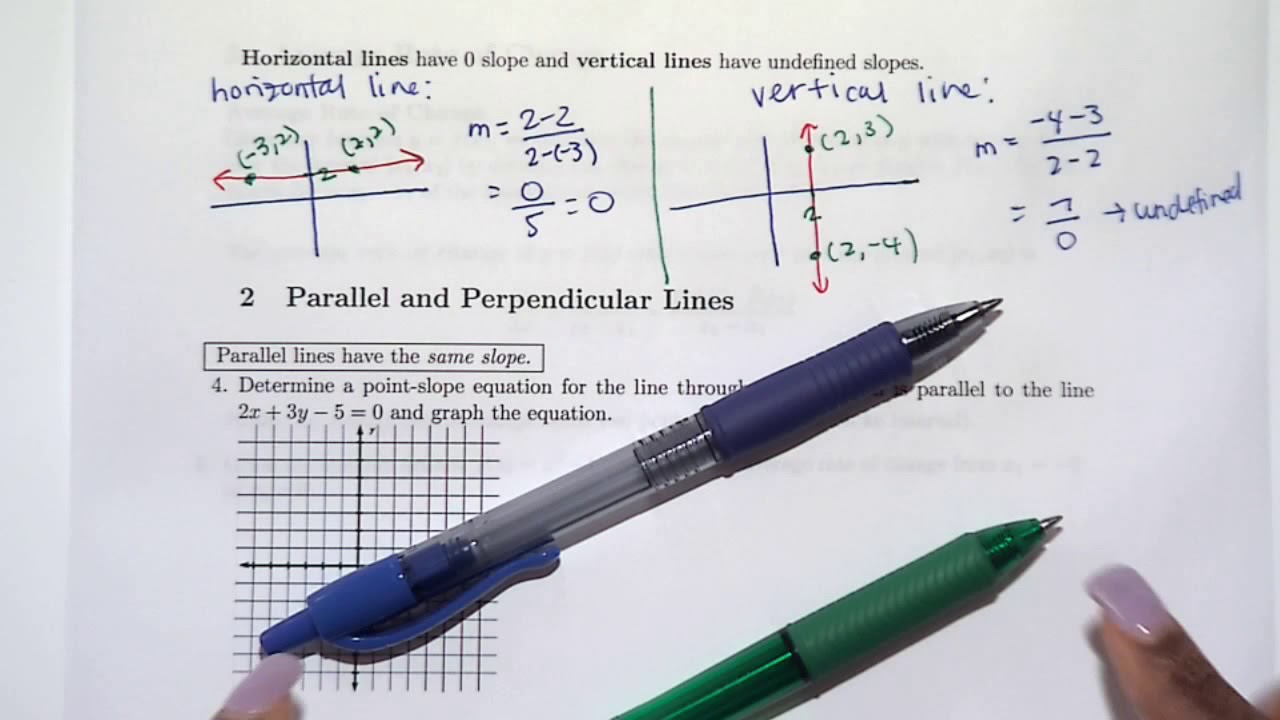 Horizontal lines have 0 slope and vertical lines have undefined slopes.
horizontal line:
(-3,2) (2,2)
2
m = 2-2 / 2-(-3)
= 0/5 = 0
vertical line:
(2,3)
2
(2,-4)
m = -4-3 / 2-2
= 7/0 → undefined
2 Parallel and Perpendicular Lines
Parallel lines have the same slope.
4. Determine a point-slope equation for the line is parallel to the line
2x + 3y − 5 = 0 and graph the equation.